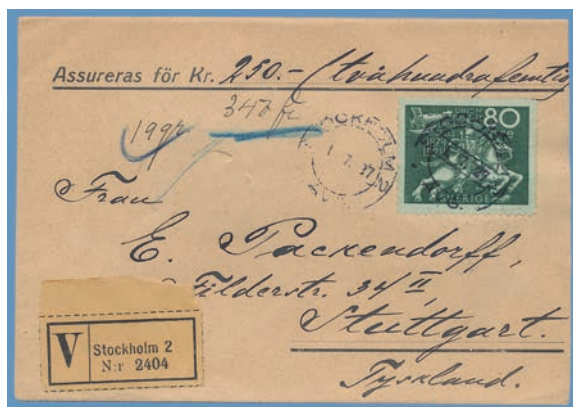 Assureras för Kr. 250.- (tvåhundrafemtio
347 fr
199r
80
1874
1924
SVERIGE
STOCKHOLM 2
1. 7. 27
Frau
E. Packendorff,
Filderstr. 34/II,
Stuttgart.
Tyskland.
V
Stockholm 2
N:r 2404